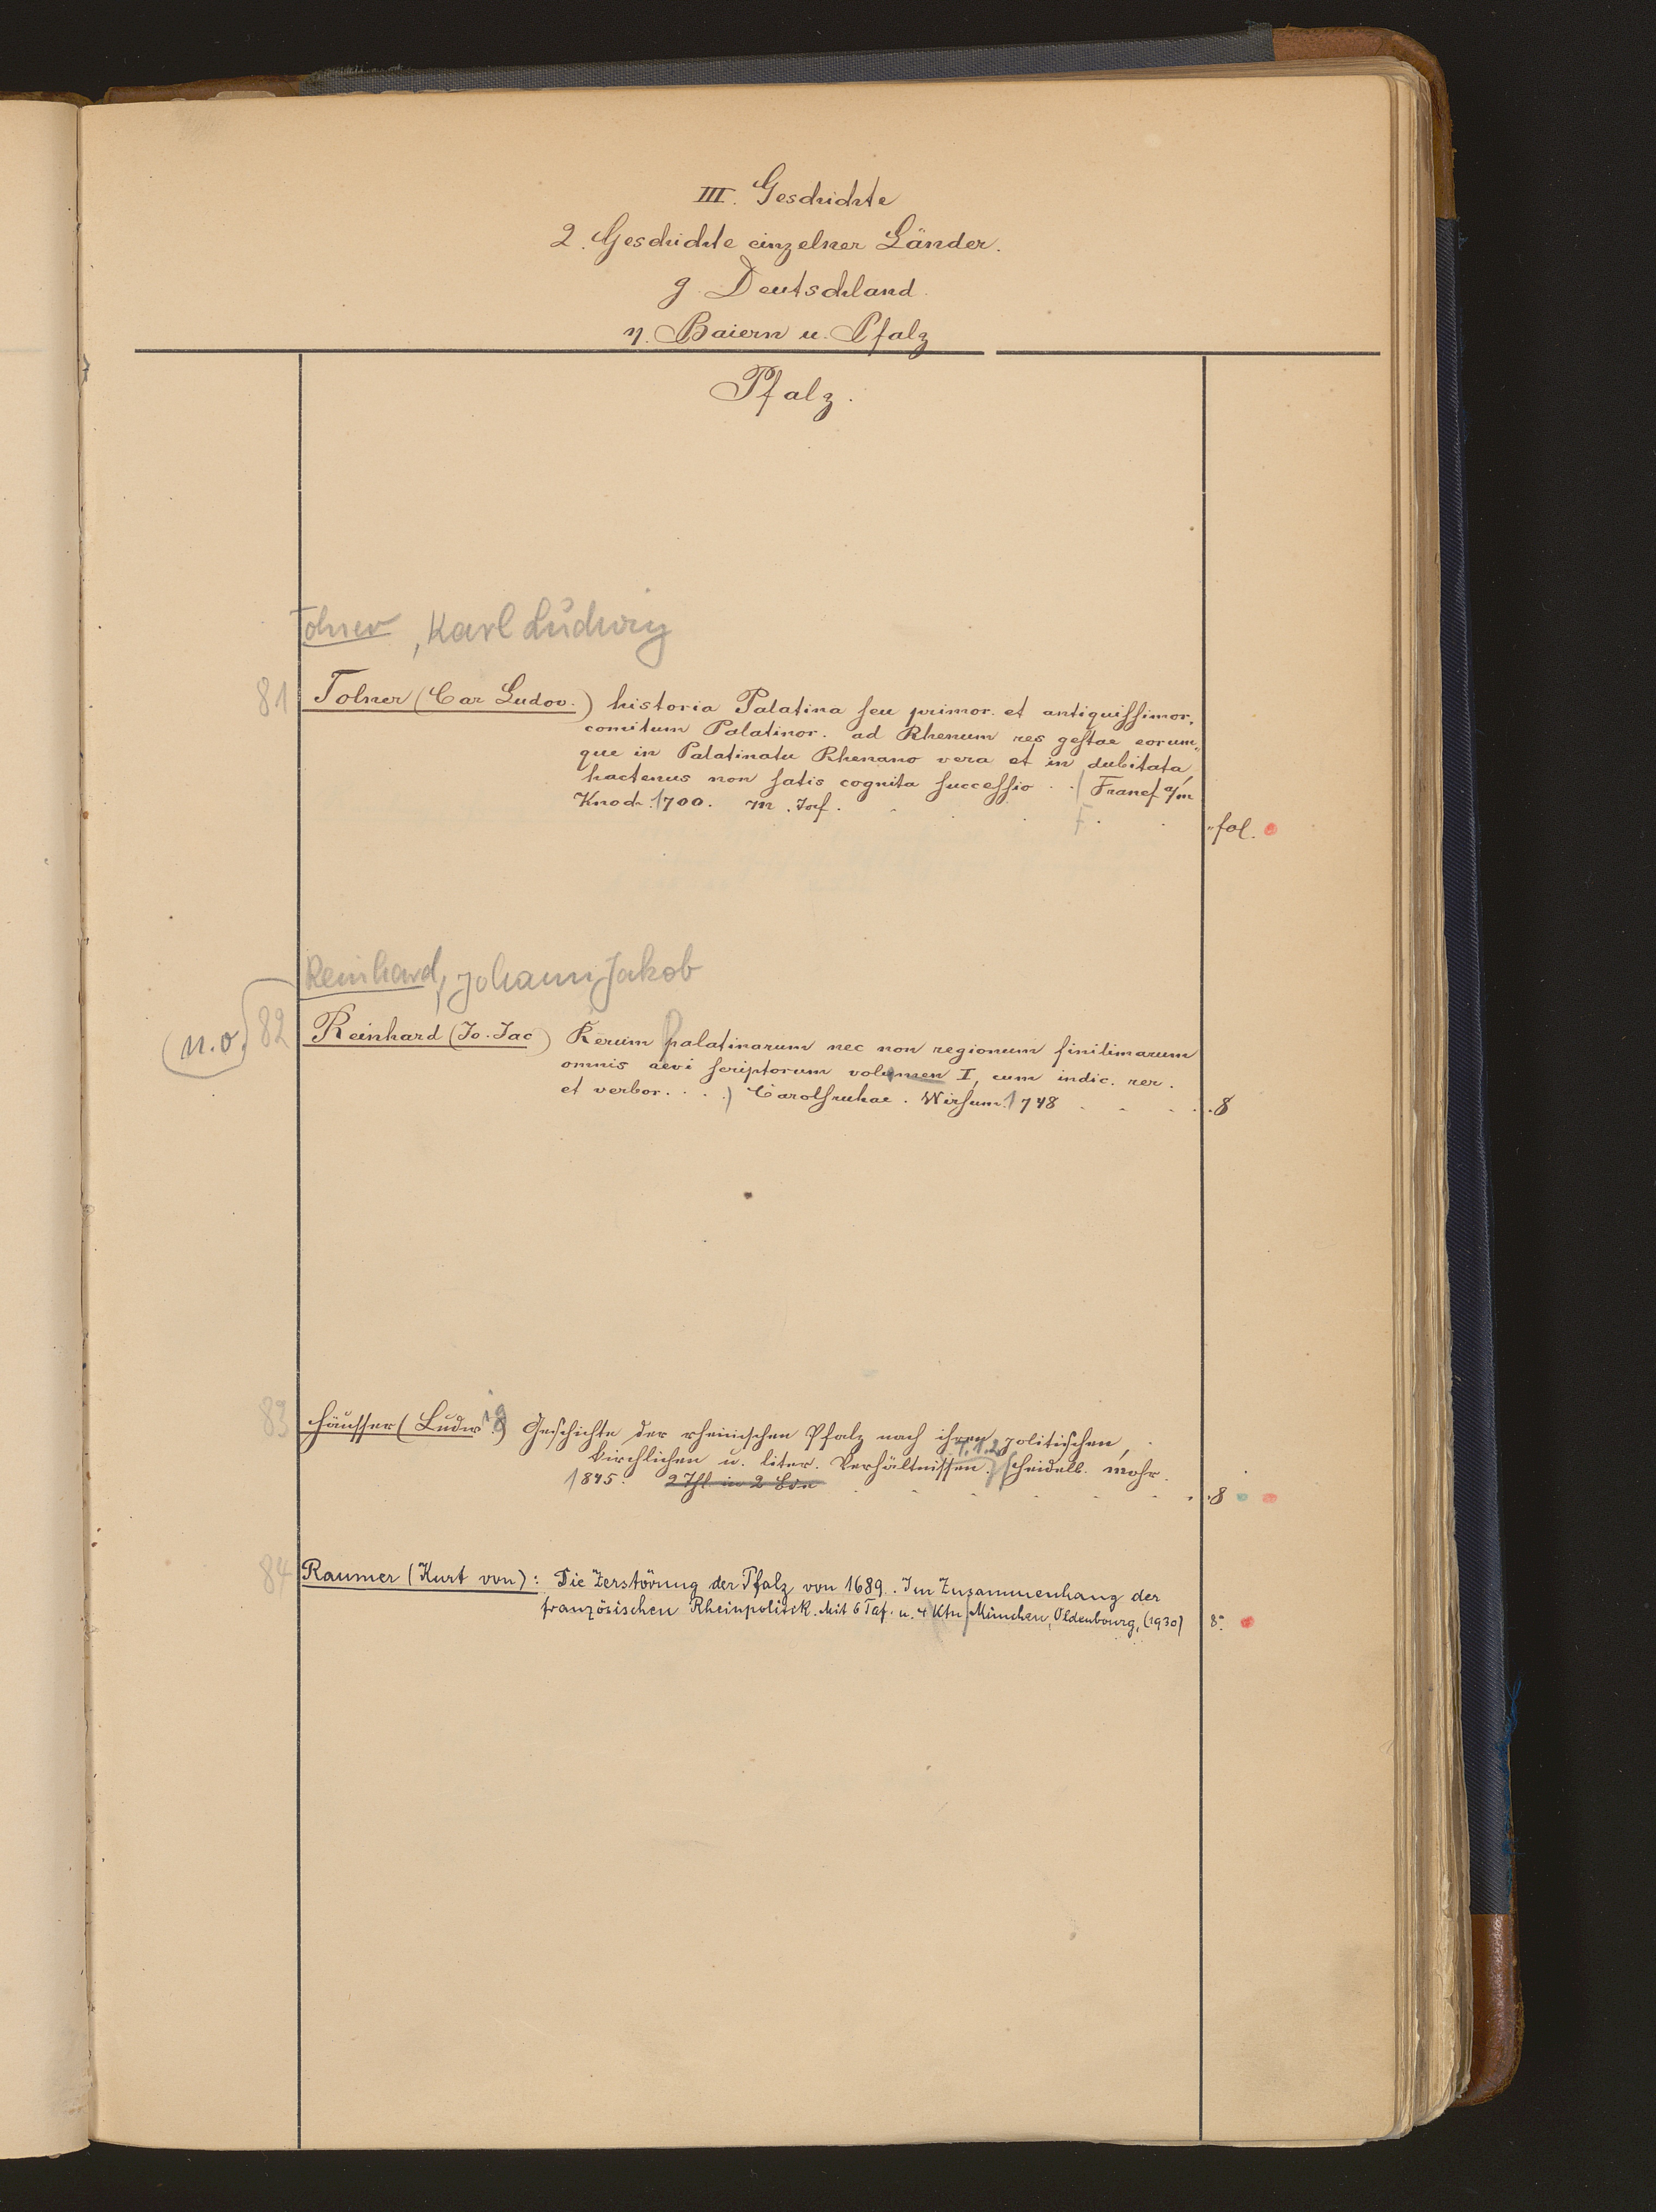 III. Geschichte
2. Geschichte einzelner Länder.
g. Deutschland.
η. Baiern u. Pfalz
Pfalz.
Tolner, Karl Ludwig
81 Tolner (Car Ludov.) historia Palatina seu primor. et antiquissimor.
comitum Palatinor. ad Rhenum res gestae eorum„
que in Palatinatu Rhenano vera et in dubitata,
hactenus non satis cognita successio . . / Francf a/m
Knoch. 1700. m.
F. „fol.
Reinhard, Johann Jakob
(n.v.) 82 Reinhard (Jo. Jac) Rerum Palatinarum nec non regionum finitimarum
omnis aevi scriptorum volumen I, cum indic. rer.
et verbor. . . .) Carolsruhae. Wirsum. 1748 . . . . 8
83 Häusser (Ludwig) Geschichte der rheinischen Pfalz nach ihren politischen,
kirchlichen u. liter. Verhältnissen. T. 1. 2 / Heidelb. Mohr.
1845. 2 Thl. in 2 Bdn . . . . . . . 8
84 Raumer (Kurt von): Die Zerstörung der Pfalz von 1689. Im Zusammenhang der
französischen Rheinpolitik. Mit 6 Taf. u. 4 Ktn / München, Oldenbourg, (1930) 8°